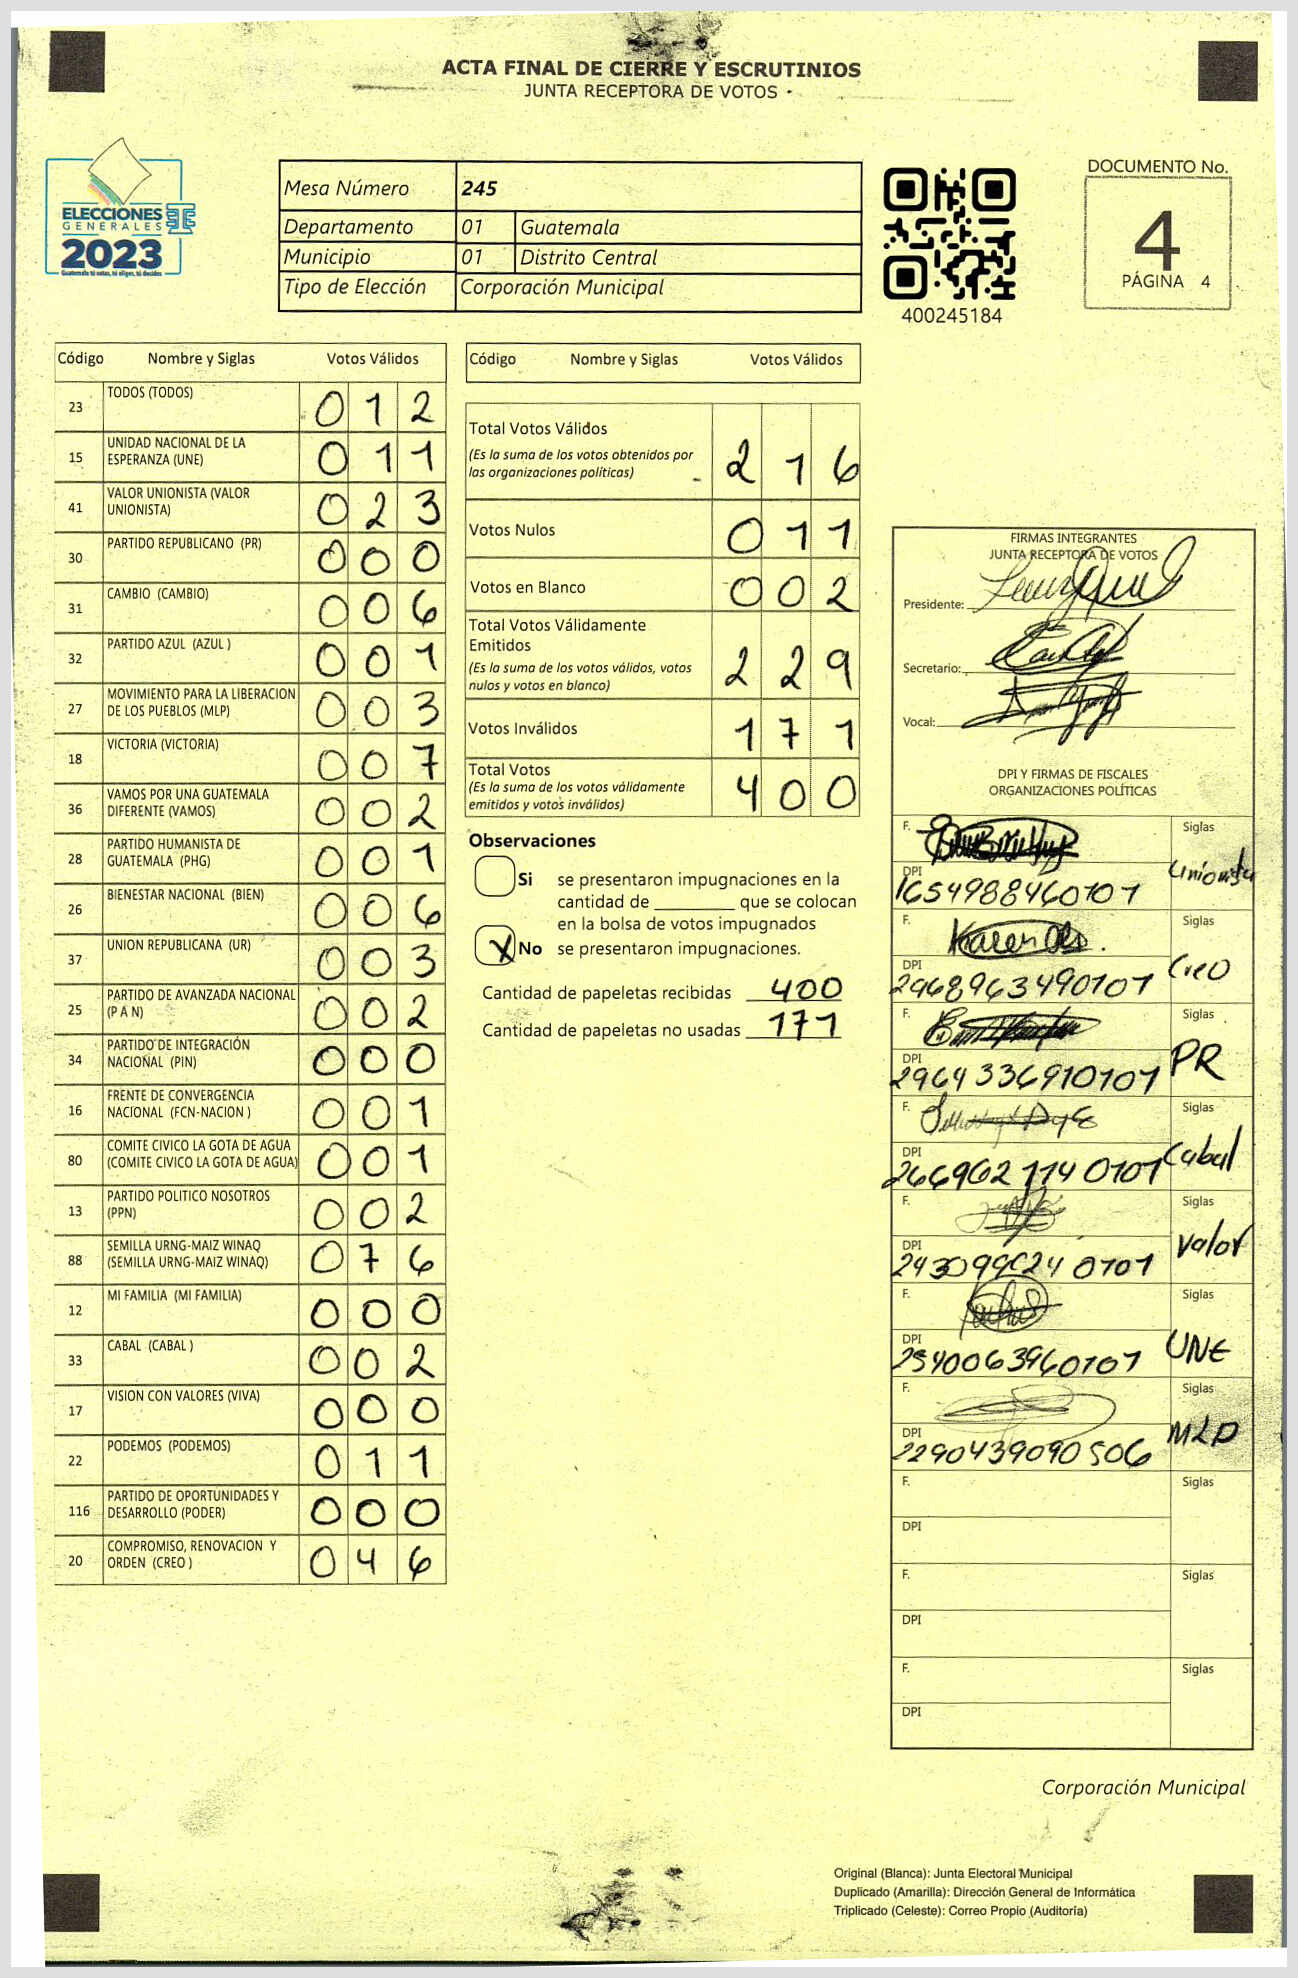 ACTA FINAL DE CIERRE Y ESCRUTINIOS
JUNTA RECEPTORA DE VOTOS
ELECCIONES
GENERALES
2023
Guatemala tú votas, tú eliges, tú decides
Mesa Número 245
Departamento 01 Guatemala
Municipio 01 Distrito Central
Tipo de Elección Corporación Municipal
400245184
DOCUMENTO No.
4
PÁGINA 4
Código Nombre y Siglas Votos Válidos
23 TODOS (TODOS) 0 1 2
15 UNIDAD NACIONAL DE LA
ESPERANZA (UNE) 0 1 1
41 VALOR UNIONISTA (VALOR
UNIONISTA) 0 2 3
30 PARTIDO REPUBLICANO (PR) 0 0 0
31 CAMBIO (CAMBIO) 0 0 6
32 PARTIDO AZUL (AZUL ) 0 0 1
27 MOVIMIENTO PARA LA LIBERACION
DE LOS PUEBLOS (MLP) 0 0 3
18 VICTORIA (VICTORIA) 0 0 7
36 VAMOS POR UNA GUATEMALA
DIFERENTE (VAMOS) 0 0 2
28 PARTIDO HUMANISTA DE
GUATEMALA (PHG) 0 0 1
26 BIENESTAR NACIONAL (BIEN) 0 0 6
37 UNION REPUBLICANA (UR) 0 0 3
25 PARTIDO DE AVANZADA NACIONAL
(P A N) 0 0 2
34 PARTIDO DE INTEGRACIÓN
NACIONAL (PIN) 0 0 0
16 FRENTE DE CONVERGENCIA
NACIONAL (FCN-NACION ) 0 0 1
80 COMITE CIVICO LA GOTA DE AGUA
(COMITE CIVICO LA GOTA DE AGUA) 0 0 1
13 PARTIDO POLITICO NOSOTROS
(PPN) 0 0 2
88 SEMILLA URNG-MAIZ WINAQ
(SEMILLA URNG-MAIZ WINAQ) 0 7 6
12 MI FAMILIA (MI FAMILIA) 0 0 0
33 CABAL (CABAL ) 0 0 2
17 VISION CON VALORES (VIVA) 0 0 0
22 PODEMOS (PODEMOS) 0 1 1
116 PARTIDO DE OPORTUNIDADES Y
DESARROLLO (PODER) 0 0 0
20 COMPROMISO, RENOVACION Y
ORDEN (CREO ) 0 4 6
Código Nombre y Siglas Votos Válidos
Total Votos Válidos
(Es la suma de los votos obtenidos por
las organizaciones políticas) 2 1 6
Votos Nulos 0 1 1
Votos en Blanco 0 0 2
Total Votos Válidamente
Emitidos
(Es la suma de los votos válidos, votos
nulos y votos en blanco) 2 2 9
Votos Inválidos 1 7 1
Total Votos
(Es la suma de los votos válidamente
emitidos y votos inválidos) 4 0 0
Observaciones
Si se presentaron impugnaciones en la
cantidad de ________ que se colocan
en la bolsa de votos impugnados
X No se presentaron impugnaciones.
Cantidad de papeletas recibidas 400
Cantidad de papeletas no usadas 171
FIRMAS INTEGRANTES
JUNTA RECEPTORA DE VOTOS
Presidente:
Secretario:
Vocal:
DPI Y FIRMAS DE FISCALES
ORGANIZACIONES POLÍTICAS
F. Siglas
Unionista
DPI
1654988460101
F. Siglas
Creo
DPI
2968963490101
F. Siglas
PR
DPI
2964336910101
F. Siglas
Cabal
DPI
2669621140101
F. Siglas
Valor
DPI
F. Siglas
UNE
DPI
2540063960101
F. Siglas
MLP
DPI
2290439090506
F. Siglas
DPI
F. Siglas
DPI
F. Siglas
DPI
Corporación Municipal
Original (Blanca): Junta Electoral Municipal
Duplicado (Amarilla): Dirección General de Informática
Triplicado (Celeste): Correo Propio (Auditoría)